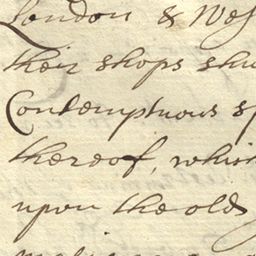 London & Wes
their shops shu
Contemptuous sp
thereof, which
upon the olds